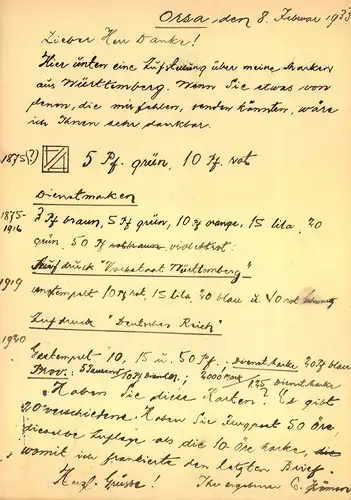 Orsa, den 8. Februar 1933
Lieber Herr Danke!
Hier unten eine Aufstellung über meine Marken
aus Württemberg. Wenn Sie etwas von
denen, die mir fehlen, senden könnten, wäre
ich Ihnen sehr dankbar.
1875(?) 5 Pf. grün, 10 Pf. rot
Dienstmarken
1875-1916 2 Pf braun, 5 Pf grün, 10 Pf orange, 15 lila, 20
grün, 50 Pf violettrot.
Aufdruck "Volksstaat Württemberg"
1919 ungestempelt 10 Pf rot, 15 lila, 20 blau u. 40 rot
Aufdruck "Deutsches Reich"
1920
Gestempelt 10, 15 u. 50 Pf; Dienstmarke 20 Pf blau
Prov: 5 Tausend 10 Pf ; 2000 Mark 125 Dienstmarke
Haben Sie diese Karten? Es gibt
20 verschiedene. Haben Sie Luftpost 50 Öre,
dieselbe Auflage als die 10 Öre Marke,
womit ich frankierte den letzten Brief.
Herzl. Grüsse! Ihr ergebener E.